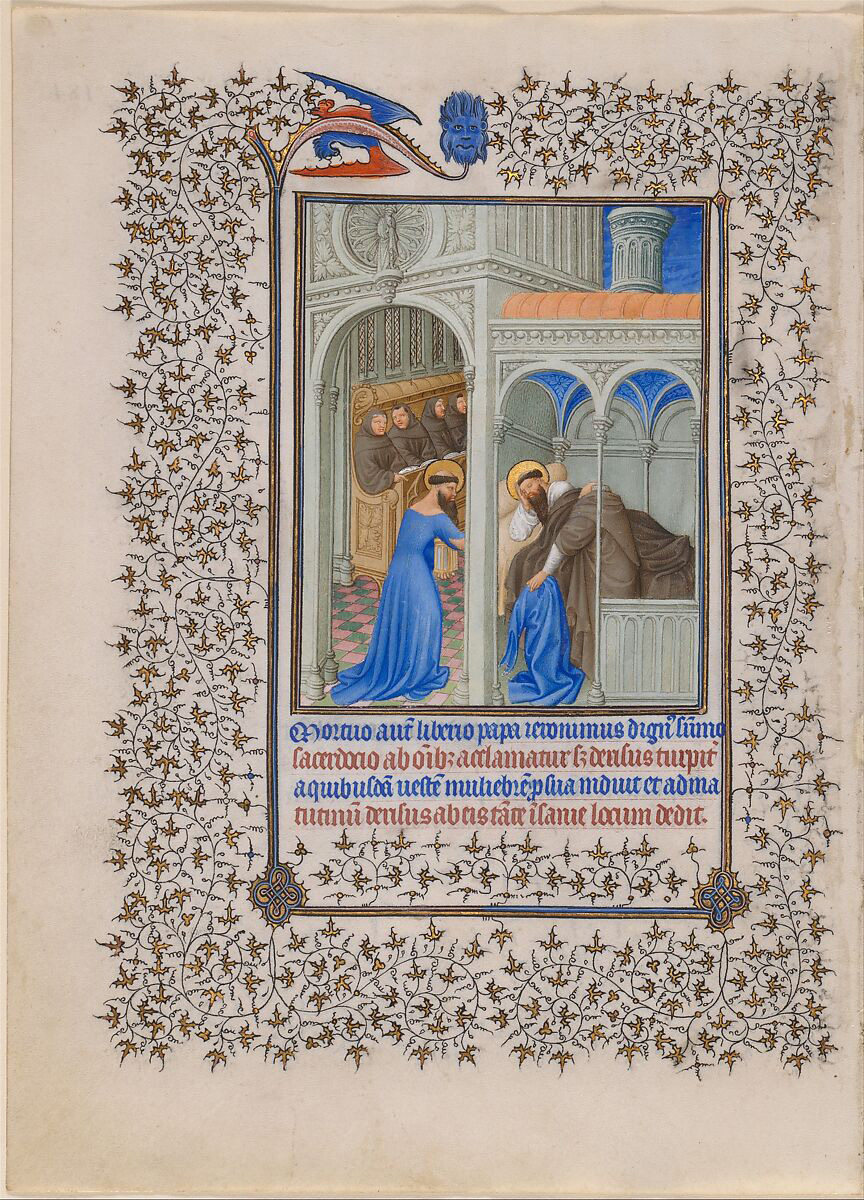 Mortuo aut̄ liberio papa ieronimus dignꝰ sūmo
sacerdocio ab oīb; acclamatur sꝫ derisus turpit̄
a quibusdā uestē muliebrē ꝑ sua induit et ad ma
tutinū derisus ab eis tāte īsanie locum dedit.